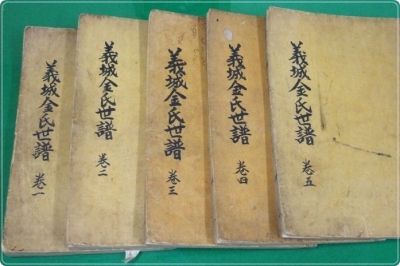 義城金氏世譜 卷一
義城金氏世譜 卷二
義城金氏世譜 卷三
義城金氏世譜 卷四
義城金氏世譜 卷五